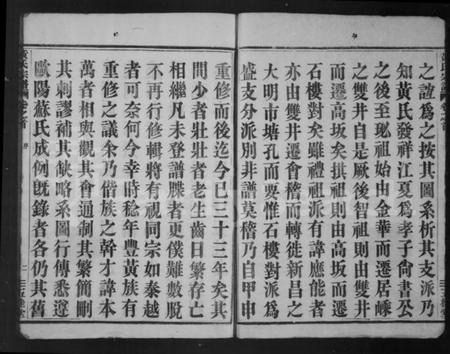 之誼爲之按其圖系析其支派乃
知黃氏發祥江夏爲孝子尙書公
之後至玭祖始由金華而遷居嵊
之雙井自是厥後智祖則由雙井
而遷高坂矣拱祖則由高坂而遷
石樓對矣雖禮祖派有諱應能者
亦由雙井遷會稽而轉徙新昌之
大明市塘孔而要惟石樓對派爲
盛支分派別非譜莫稽乃自甲申
重修而後迄今已三十三年矣其
間少者壯壯者老生齒日繁存亡
相繼凡未登譜牒者更僕難數脫
不再行修輯將有視同宗如秦越
者可奈何今幸時稔年豐黃族有
重修之議余乃偕族之幹才諱本
萬者相與觀其會通制其繁簡刪
其刺謬補其缺略系圖行傳悉遵
歐陽蘇氏成例旣錄者各仍其舊